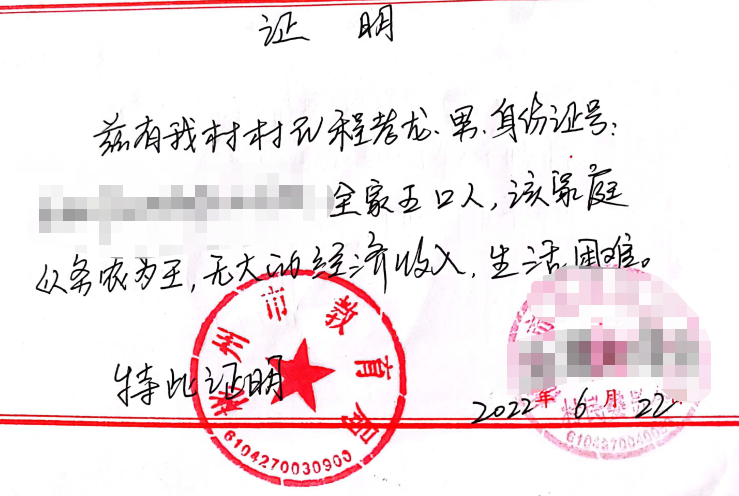 证 明
兹有我村村民程孝龙、男、身份证号：
全家五口人，该家庭
以务农为主，无大的经济收入，生活困难。
特此证明
彬州市教育局
6104270030900
2022年6月22